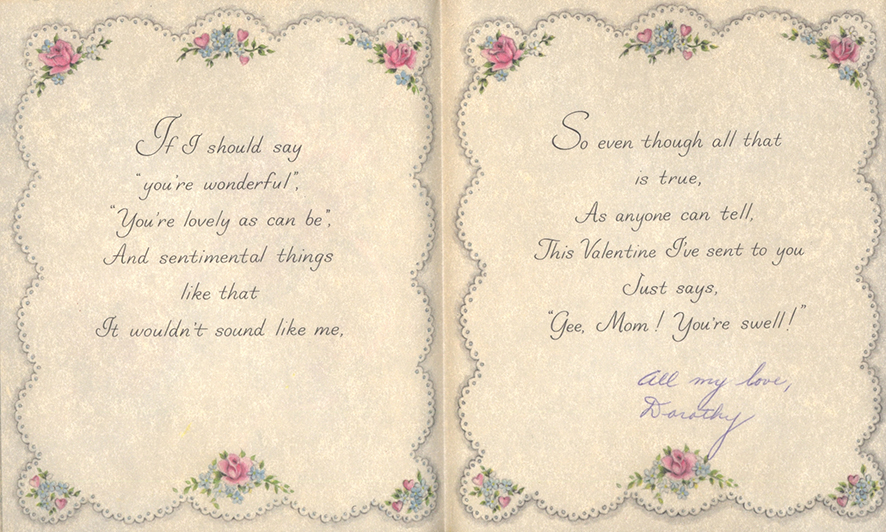 If I should say
"you're wonderful",
"You're lovely as can be",
And sentimental things
like that
It wouldn't sound like me,
So even though all that
is true,
As anyone can tell,
This Valentine I've sent to you
Just says,
"Gee, Mom! You're swell!"
All my love,
Dorothy